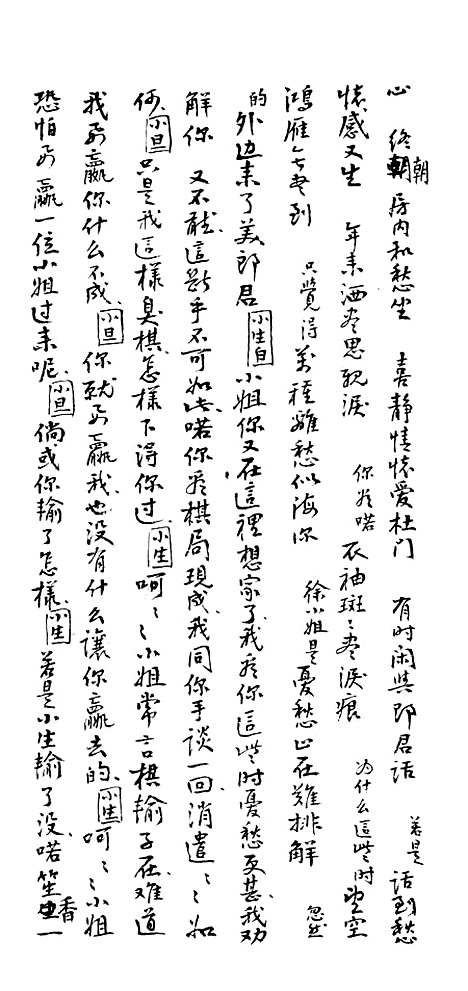 心 终朝朝房内和愁坐 喜静情怀爱杜门 有时闲与郎君话 若是话到愁
怀感又生 年来洒尽思亲泪 你看喏衣袖斑〻尽泪痕 为什么這些时望空
鸿雁七尽到 只覺得萬種離愁似海深 徐小姐是憂愁正在難排解 忽然
的外边来了美郎君 小生白 小姐你又在這裡想家了我看你這些时憂愁更甚、我劝
解你 又不能這樣乎不可如此、喏你看棋局現成、我同你手談一回消遣〻〻如
何、小旦 只是我這樣臭棋、怎樣下得你过、小生 呵〻〻小姐常言棋輸子在、难道
我而贏你什么不成、小旦 你就而贏我、也没有什么讓你贏去的、小生 呵〻〻小姐
恐怕而贏一位小姐过来呢、小旦 倘或你輸了怎樣、小生 若是小生輸了没、喏笙香一